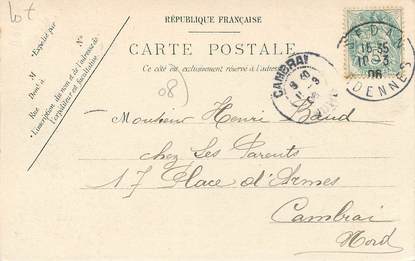 lot
RÉPUBLIQUE FRANÇAISE
CARTE POSTALE
Ce côté est exclusivement réservé à l'adresse
Expédié par
M
Demt à
Rue
N°
L'inscription du nom et de l'adresse de
l'expéditeur est facultative
SEDAN
16-35
10-3
06
ARDENNES
CAMBRAI
9 40
11-3
06
NORD
08)
Monsieur Henri Baud
chez Ses Parents
17 Place d'Armes
Cambrai
Nord